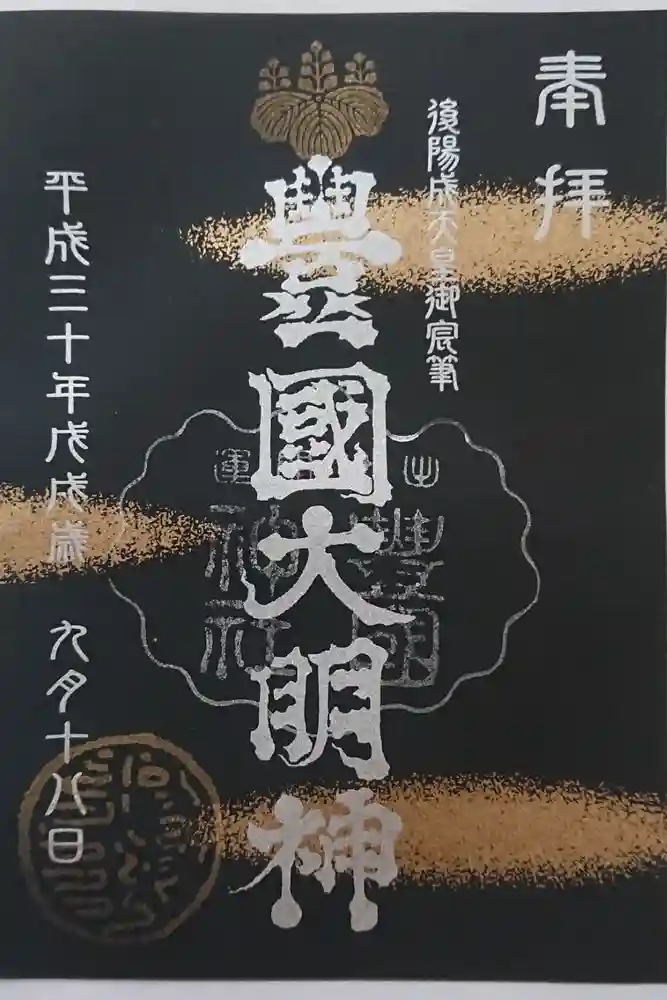 奉拝
後陽成天皇御宸筆
豊國大明神
豊國
神社
平成三十年戊戌歳 九月十八日